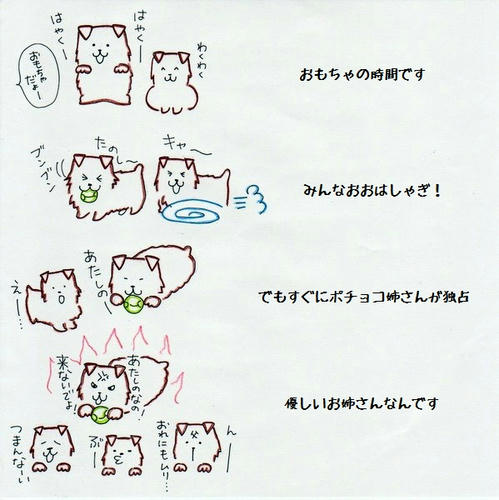 はやくー
はやくー
わくわく
おもちゃ
だよー
おもちゃの時間です
ブンブン
たのしー
キャー
みんなおおはしゃぎ！
えー…
あたしのー
でもすぐにポチョコ姉さんが独占
来ないでよ！
あたしのなの！
優しいお姉さんなんです
つまんなーい
ぶー
おれにもムリ…
んー